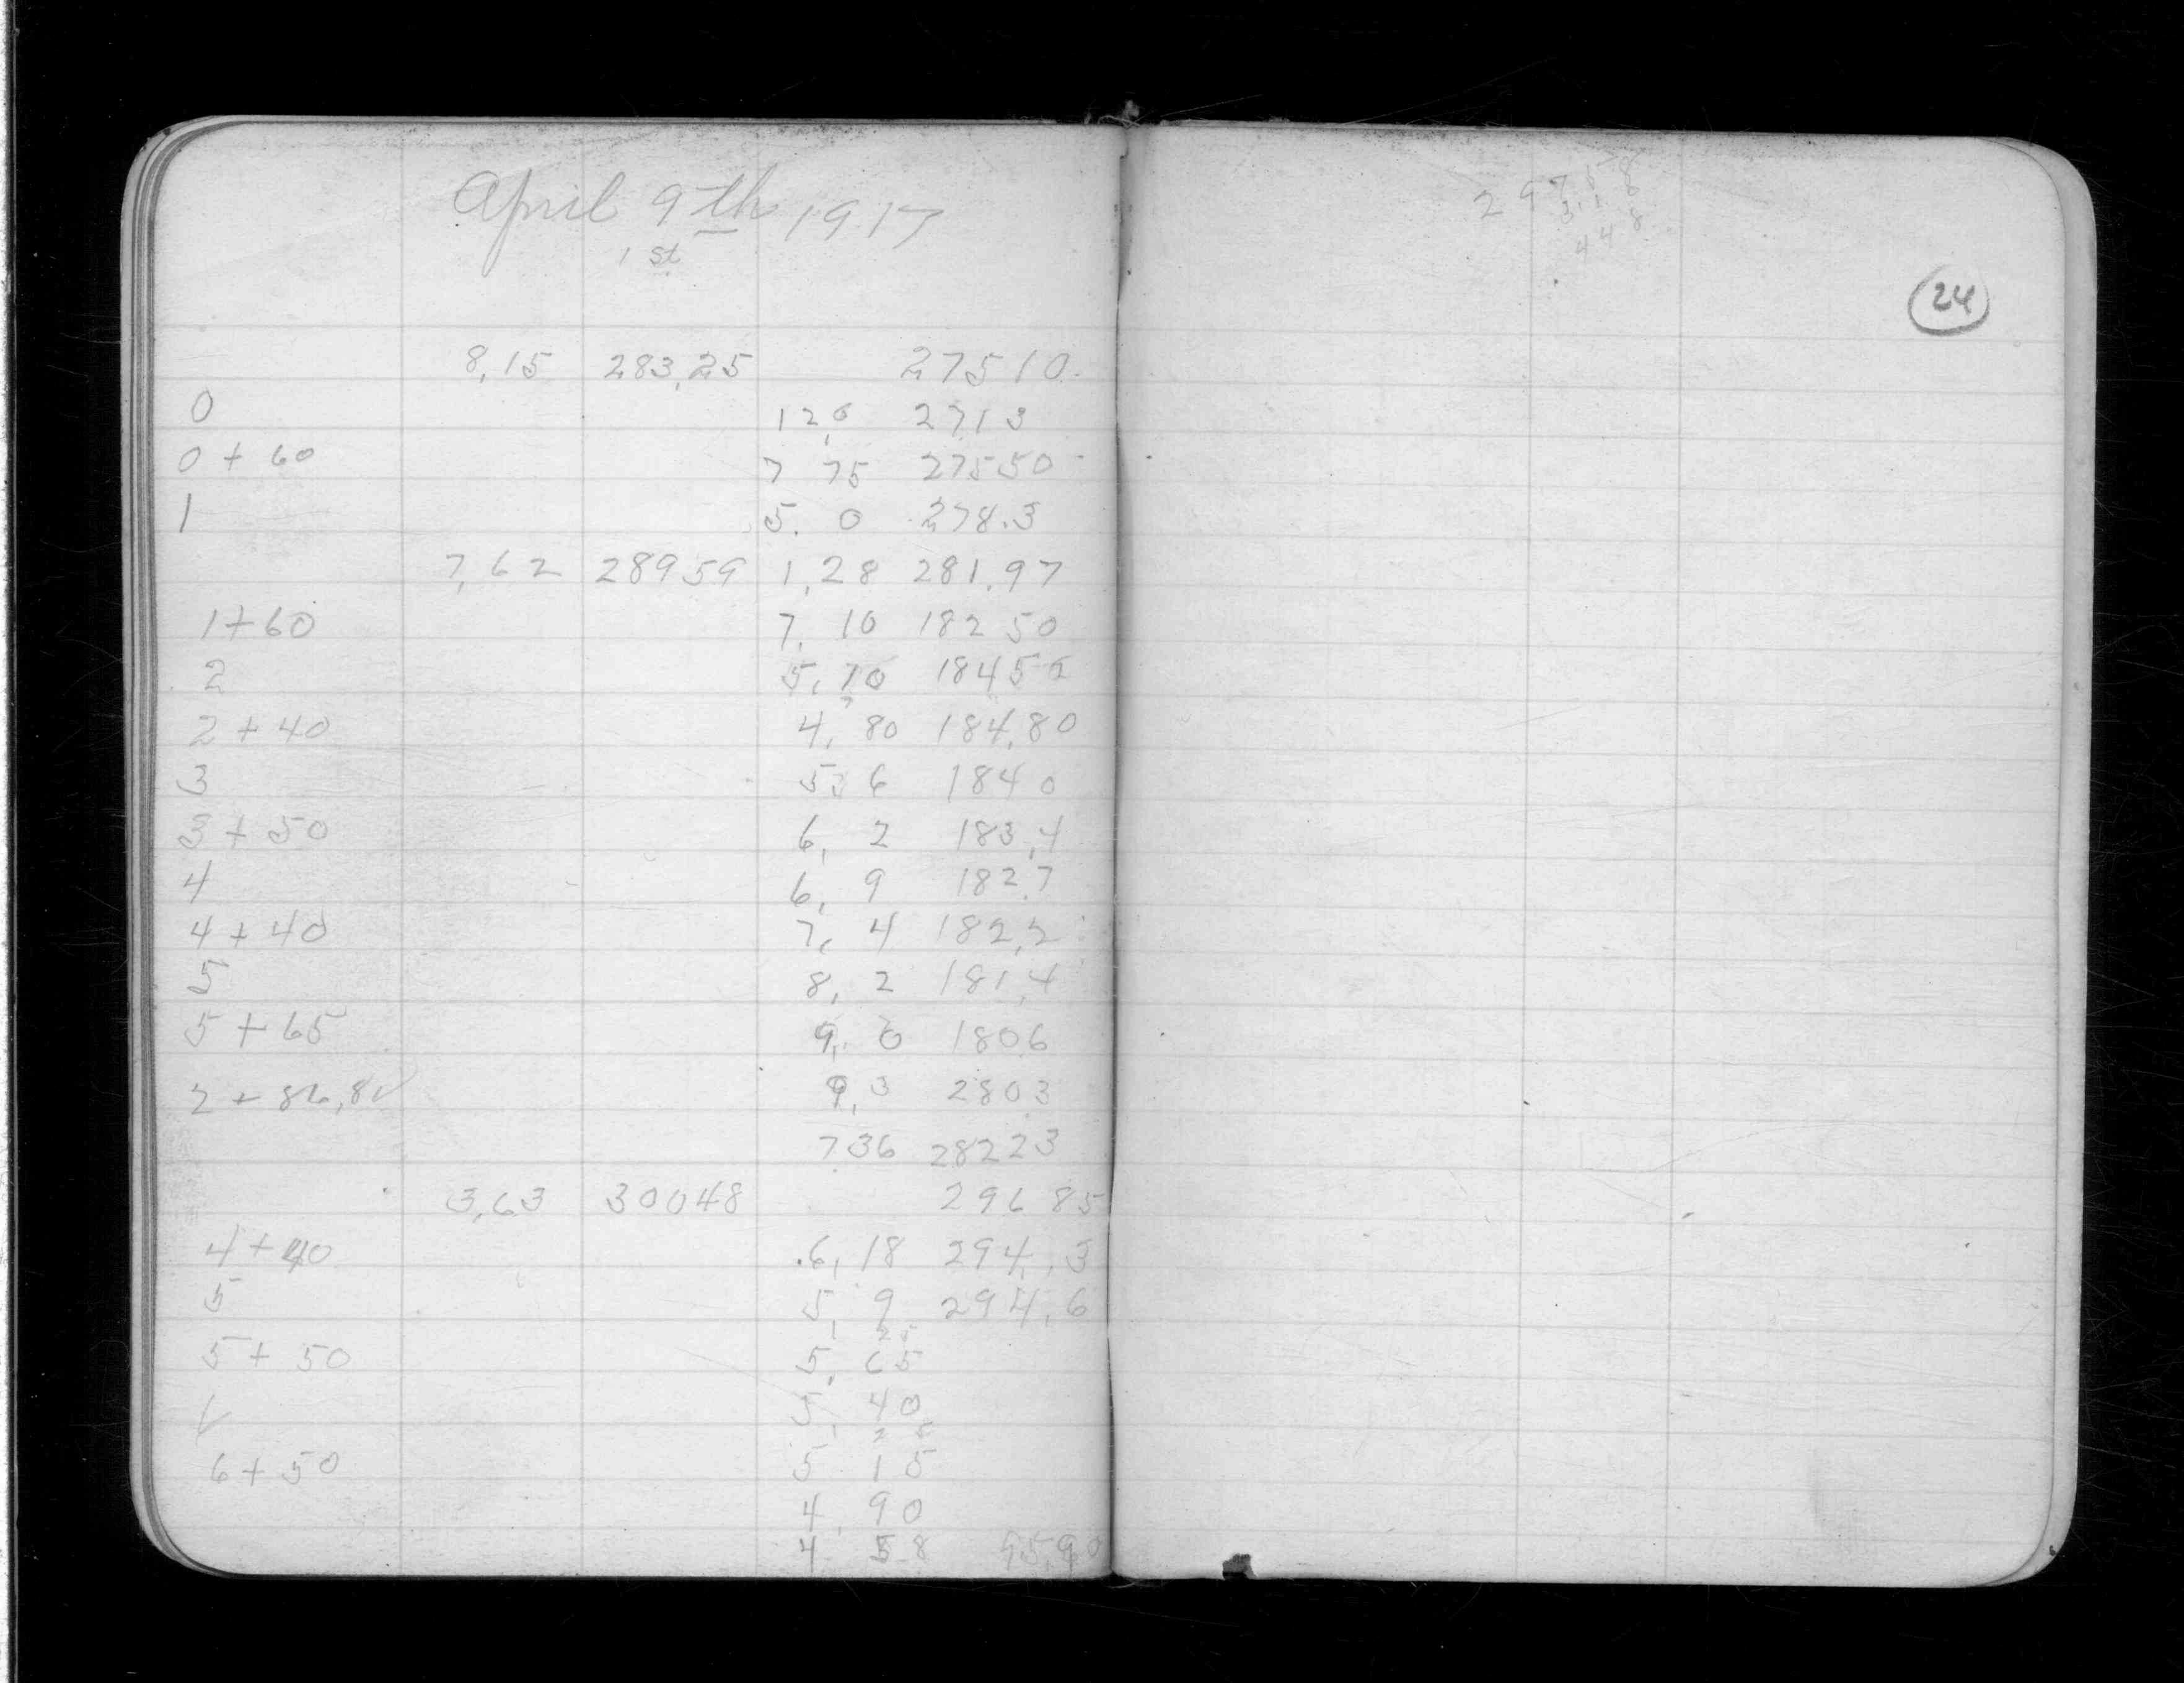 April 9th 1917
1 st
8,15 283,25 27510.
0 12,6 2713
0 + 60 7 75 27550
1 5. 0 278.3
7,62 28959 1,28 281,97
1+60 7, 10 182 50
2 5, 10
2 + 40 4, 80 184,80
3 5 6 184 0
3 + 50 6, 2 183,4
4 6, 9 182.7
4 + 40 7, 4 182,2
5 8, 2 181,4
5 + 65 9, 0 180.6
9,3 2803
736 28223
3,63 30048 296 85
4 + 40 .6, 18 294, 3
5 5, 9 294, 6
25
5 + 50 5, 65
5, 40
6 + 50 5 15
4, 90
4 58 95,90
448
24